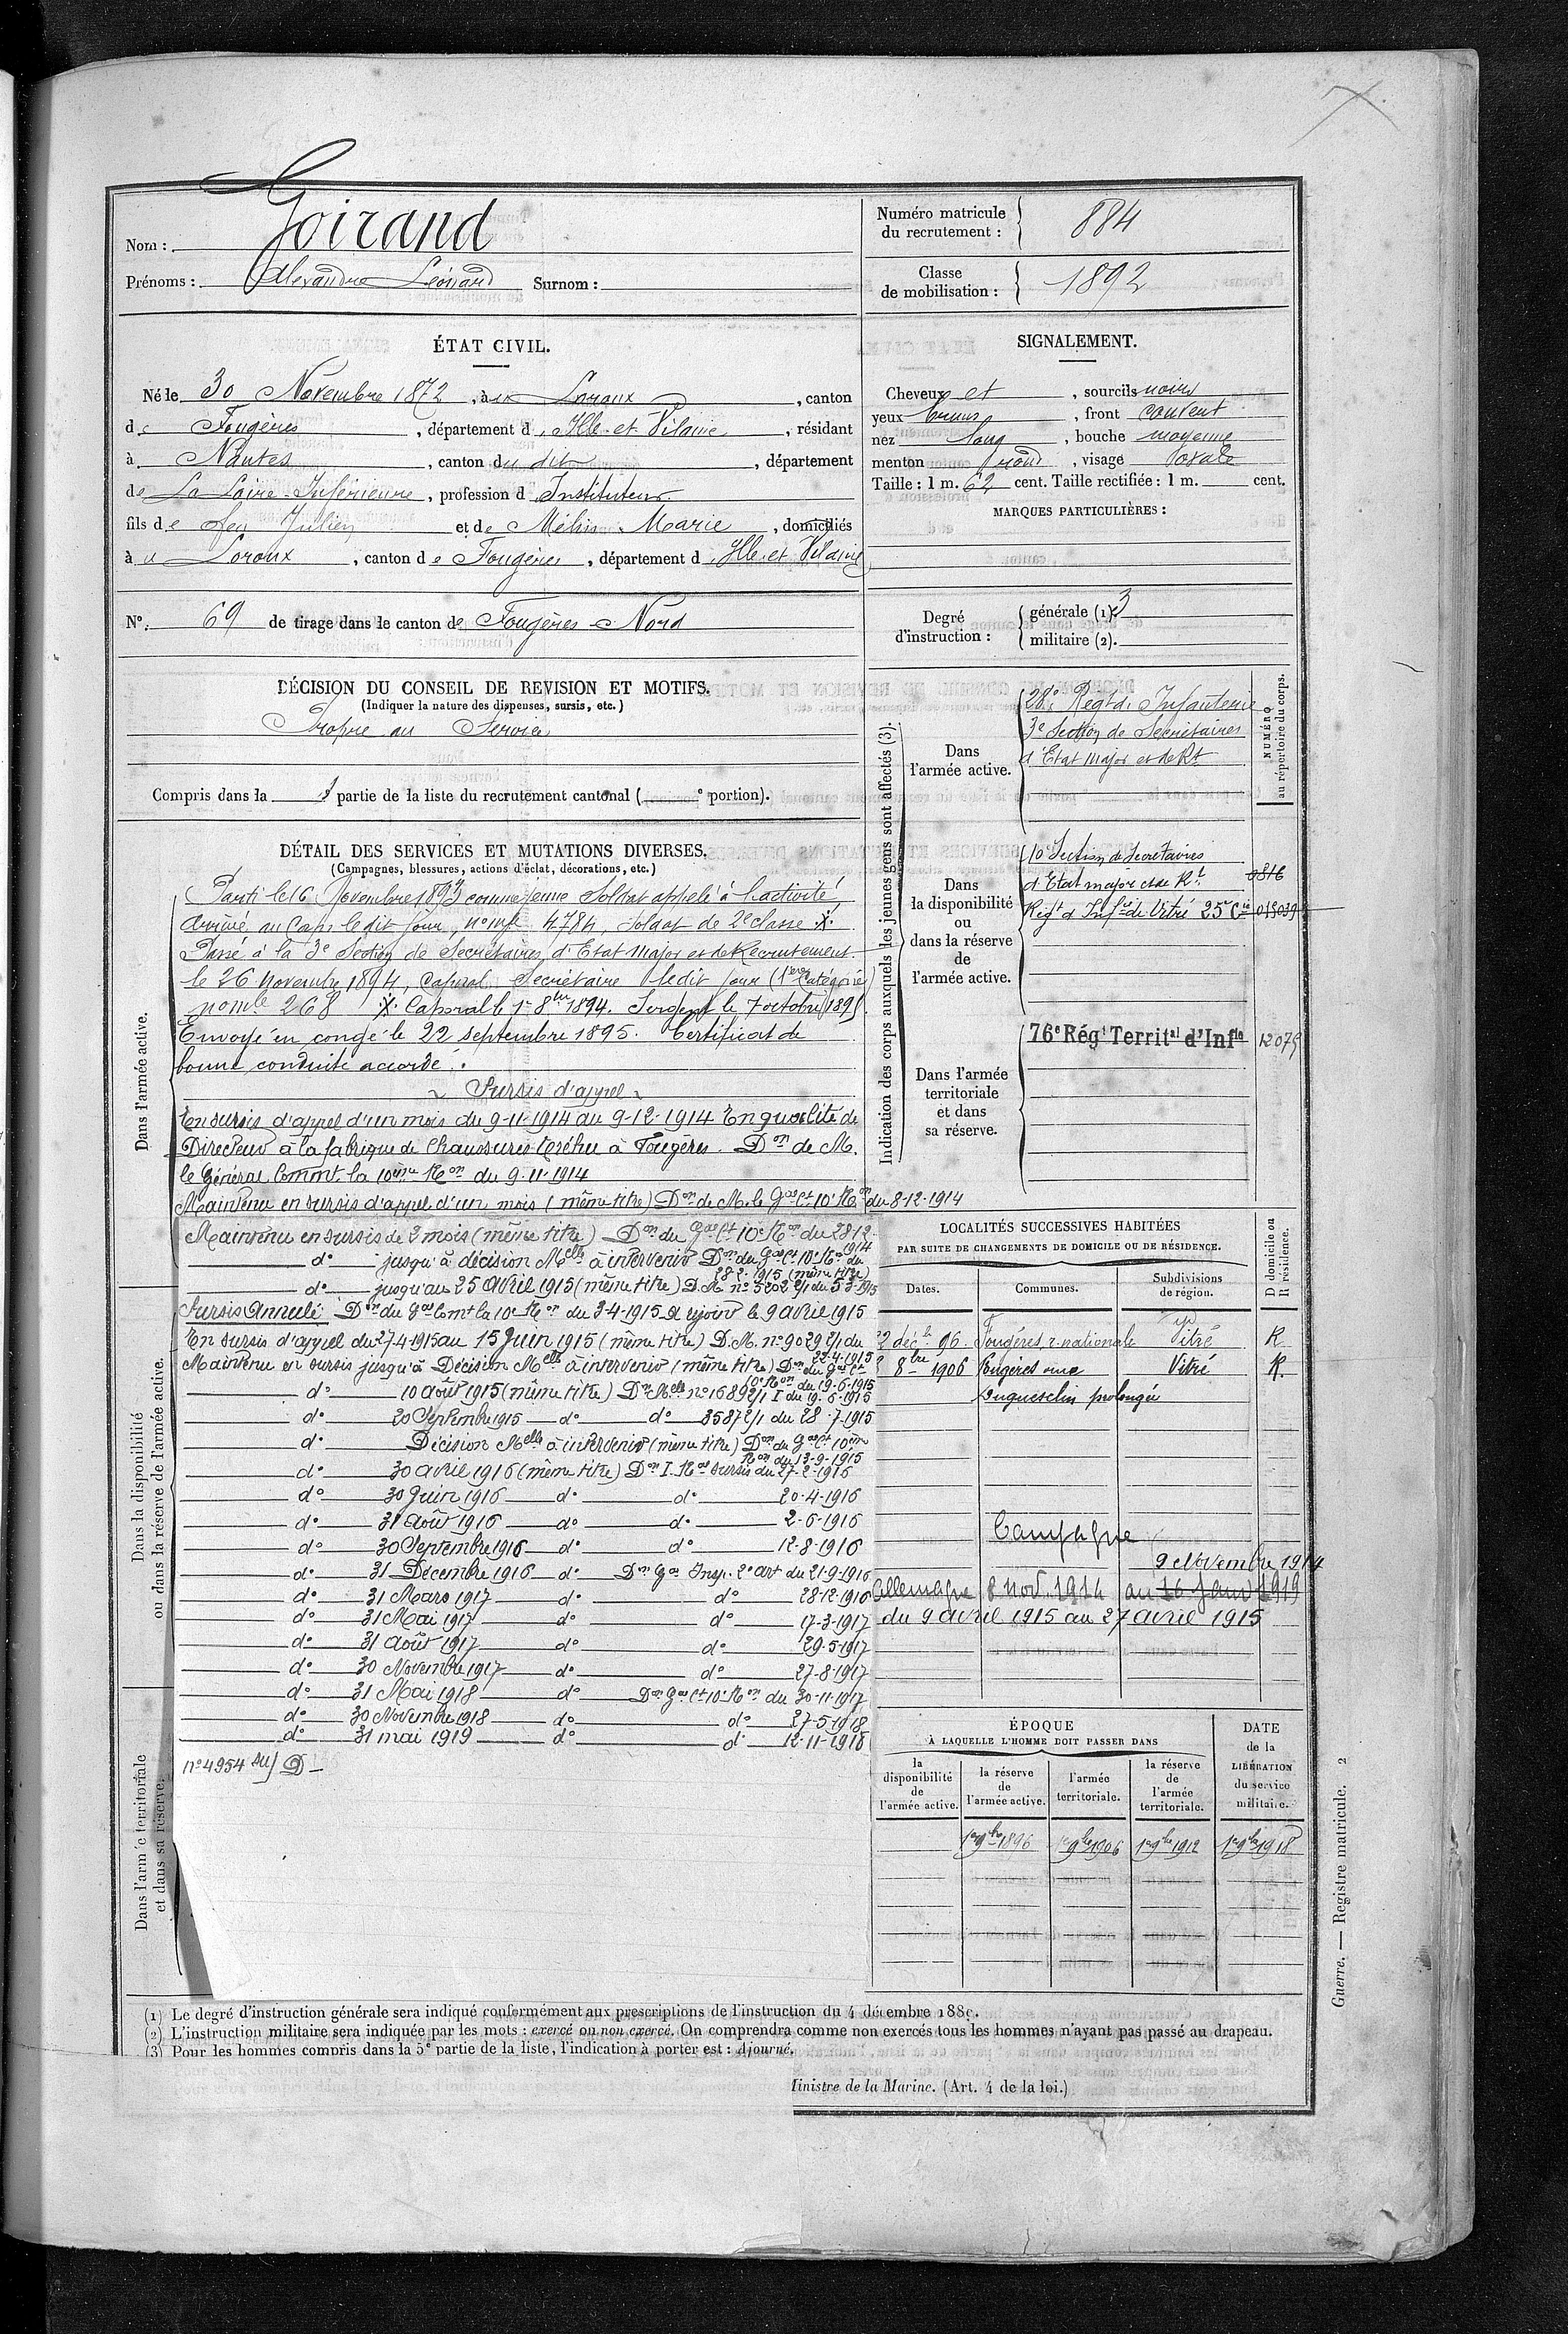 Goirand
Nom :
Prénoms : Alexandre Léonard Surnom :
Numéro matricule du recrutement : 884
Classe de mobilisation : 1892
ÉTAT CIVIL.
Né le 30 Novembre 1872, à u Loroux, canton
de Fougères, département d Ille et Vilaine, résidant
à Nantes, canton du dit, département
de La Loire-Inférieure, profession d Instituteur
fils de feu Julien et de Marie, domiciliés
à u Loroux, canton de Fougères, département d Ille et Vilaine
N° 69 de tirage dans le canton de Fougères-Nord
SIGNALEMENT.
Cheveux et, sourcils noirs
yeux bruns, front couvert
nez long, bouche moyenne
menton rond, visage ovale
Taille : 1 m. 62 cent. Taille rectifiée : 1 m. cent.
MARQUES PARTICULIÈRES :
Degré d'instruction : générale (1). 3
militaire (2).
DÉCISION DU CONSEIL DE REVISION ET MOTIFS.
(Indiquer la nature des dispenses, sursis, etc.)
Propre au Service
Compris dans la 1 partie de la liste du recrutement cantonal ( e portion).
Indication des corps auxquels les jeunes gens sont affectés (3).
NUMÉRO au répertoire du corps.
Dans l'armée active.
28e Régt d'Infanterie
3e Section de Secrétaires
d'Etat Major et de Rt
Dans la disponibilité ou dans la réserve de l'armée active.
10 Section de Secrétaires
d'Etat major et de Rt 0816
Régt d'Infie de Vitré 25e Cie 018039
Dans l'armée territoriale et dans sa réserve.
76e Régt Territal d'Infie 12075
DÉTAIL DES SERVICES ET MUTATIONS DIVERSES.
(Campagnes, blessures, actions d'éclat, décorations, etc.)
Dans l'armée active.
Parti le 16 Novembre 1893 comme jeune Soldat appelé à l'activité
Arrivé au Corps le dit jour, no mle 4784, Soldat de 2e classe
Passé à la 3e Section de Secrétaires d'Etat Major et de Recrutement
le 26 novembre 1894, Caporal Secrétaire ledit jour (1ère Catégorie)
no mle 268 Caporal le 1er 8bre 1894. Sergent le 7 octobre 1895
Envoyé en congé le 22 septembre 1895. Certificat de
bonne conduite accordé.
Sursis d'appel
En sursis d'appel d'un mois du 9-11-1914 au 9-12-1914 En qualité de
Directeur à la fabrique de Chaussures à Fougères. Don de M.
le Général Commt la 10ème Ron du 9-11-1914
Maintenu en sursis d'appel d'un mois (même titre) Don de M. le Gal Ct 10e Ron du 8-12-1914
Maintenu en sursis de 2 mois (même titre) Don du Gal Ct 10e Ron du 28-12-1914
do jusqu'à décision Melle à intervenir Don du Gal Ct 10e Ron du 28-2-1915 (même titre)
do jusqu'au 25 avril 1915 (même titre) D.M. no 5202 2/1 du 5-3-1915
Sursis Annulé Don du Gal Comt la 10e Ron du 3-4-1915 A rejoint le 9 avril 1915
En sursis d'appel du 27-4-1915 au 15 Juin 1915 (même titre) D.M. no 9029 2/1 du 22-4-1915
Maintenu en sursis jusqu'à Décision Melle à intervenir (même titre) Don du Gal Ct 10e Ron du 19-6-1915
do 10 août 1915 (même titre) Don Melle no 16892/1 I du 19-6-1915
do 30 Septembre 1915 do do 3587 2/1 du 28-7-1915
do Décision Melle à intervenir (même titre) Don du Gal Ct 10ème Ron du 13-9-1915
do 30 avril 1916 (même titre) Don I. Ral sursis du 27-2-1916
do 30 Juin 1916 do do 20-4-1916
do 31 Août 1916 do do 2-6-1916
do 30 Septembre 1916 do do 12-8-1916
do 31 Décembre 1916 do Don Gal Insp. 2e art du 21-9-1916
do 31 Mars 1917 do do 28-12-1916
do 31 Mai 1917 do do 17-3-1917
do 31 Août 1917 do do 29-5-1917
do 30 Novembre 1917 do do 27-8-1917
do 31 Mai 1918 do Don Gal Ct 10e Ron du 30-11-1917
do 30 Novembre 1918 do do 27-5-1918
do 31 mai 1919 do do 12-11-1918
no 4954 D
Dans la disponibilité ou dans la réserve de l'armée active.
Dans l'armée territoriale et dans sa réserve.
LOCALITÉS SUCCESSIVES HABITÉES
PAR SUITE DE CHANGEMENTS DE DOMICILE OU DE RÉSIDENCE.
Dates. Communes. Subdivisions de région. D domicile ou R résidence.
2 déc. 96 Fougères r. nationale Vitré R
8bre 1906 Fougères rue Vitré R.
Duguesclin prolongée
Campagne
9 Novembre 1914
Allemagne 8 nov. 1914 au 16 Janv 1919
du 9 avril 1915 au 27 avril 1915
ÉPOQUE
À LAQUELLE L'HOMME DOIT PASSER DANS
la disponibilité de l'armée active. la réserve de l'armée active. l'armée territoriale. la réserve de l'armée territoriale. DATE de la LIBÉRATION du service militaire.
1er 9bre 1896 1er 9bre 1906 1er 9bre 1912 1er 9bre 1918
(1) Le degré d'instruction générale sera indiqué conformément aux prescriptions de l'instruction du 4 décembre 1889.
(2) L'instruction militaire sera indiquée par les mots : exercé ou non exercé. On comprendra comme non exercés tous les hommes n'ayant pas passé au drapeau.
(3) Pour les hommes compris dans la 5e partie de la liste, l'indication à porter est : Ajourné.
Ministre de la Marine. (Art. 4 de la loi.)
Guerre. — Registre matricule. 2